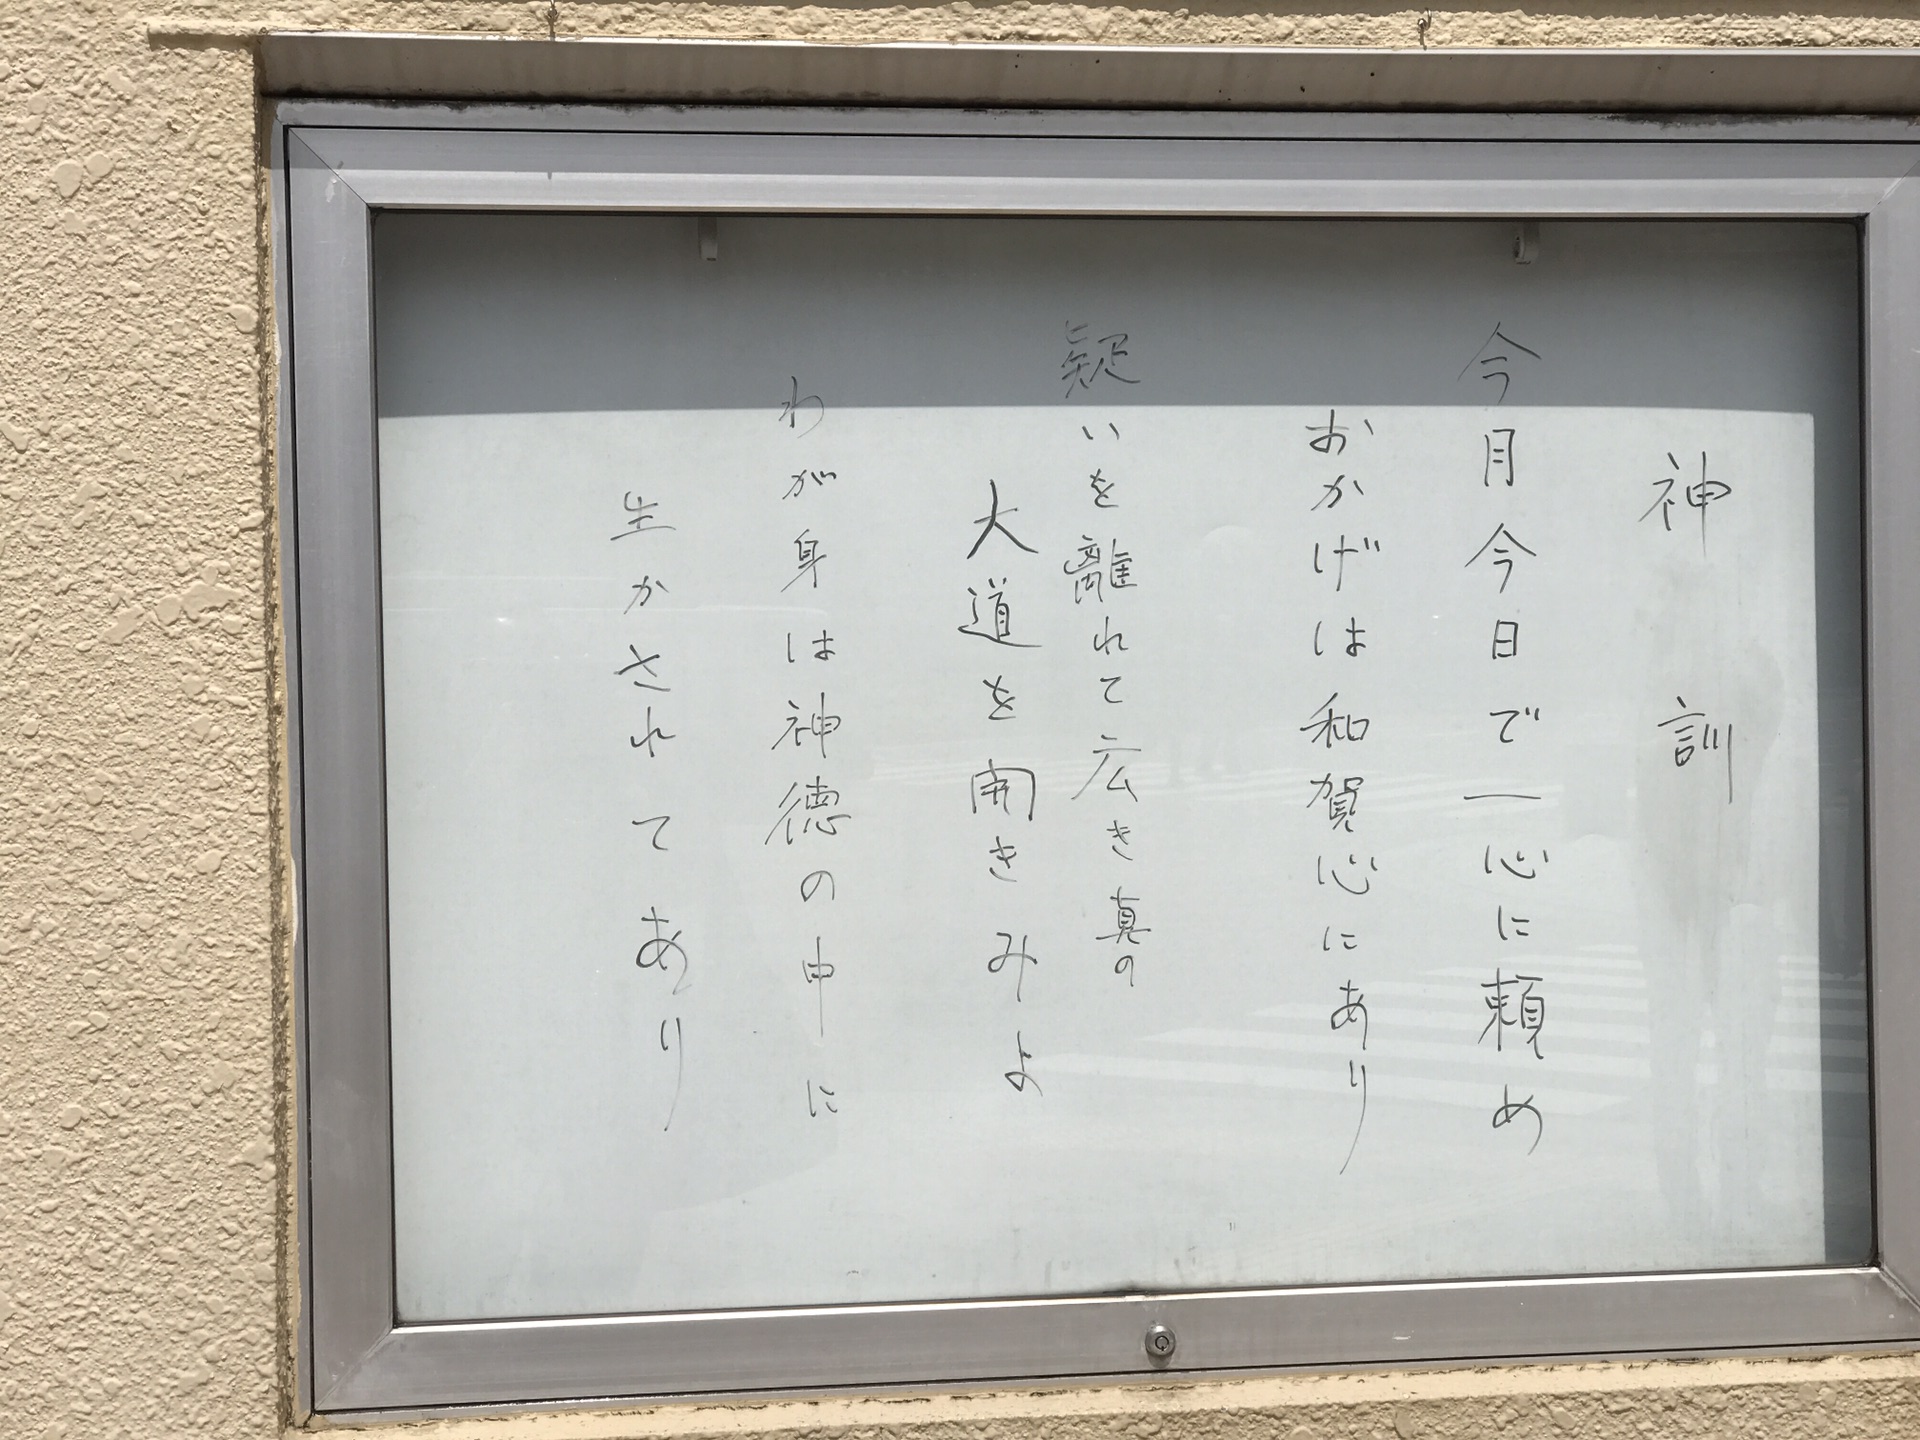 神訓
今月今日で一心に頼め
おかげは和賀心にあり
疑いを離れて広き真の
大道を開きみよ
わが身は神徳の中に
生かされてあり